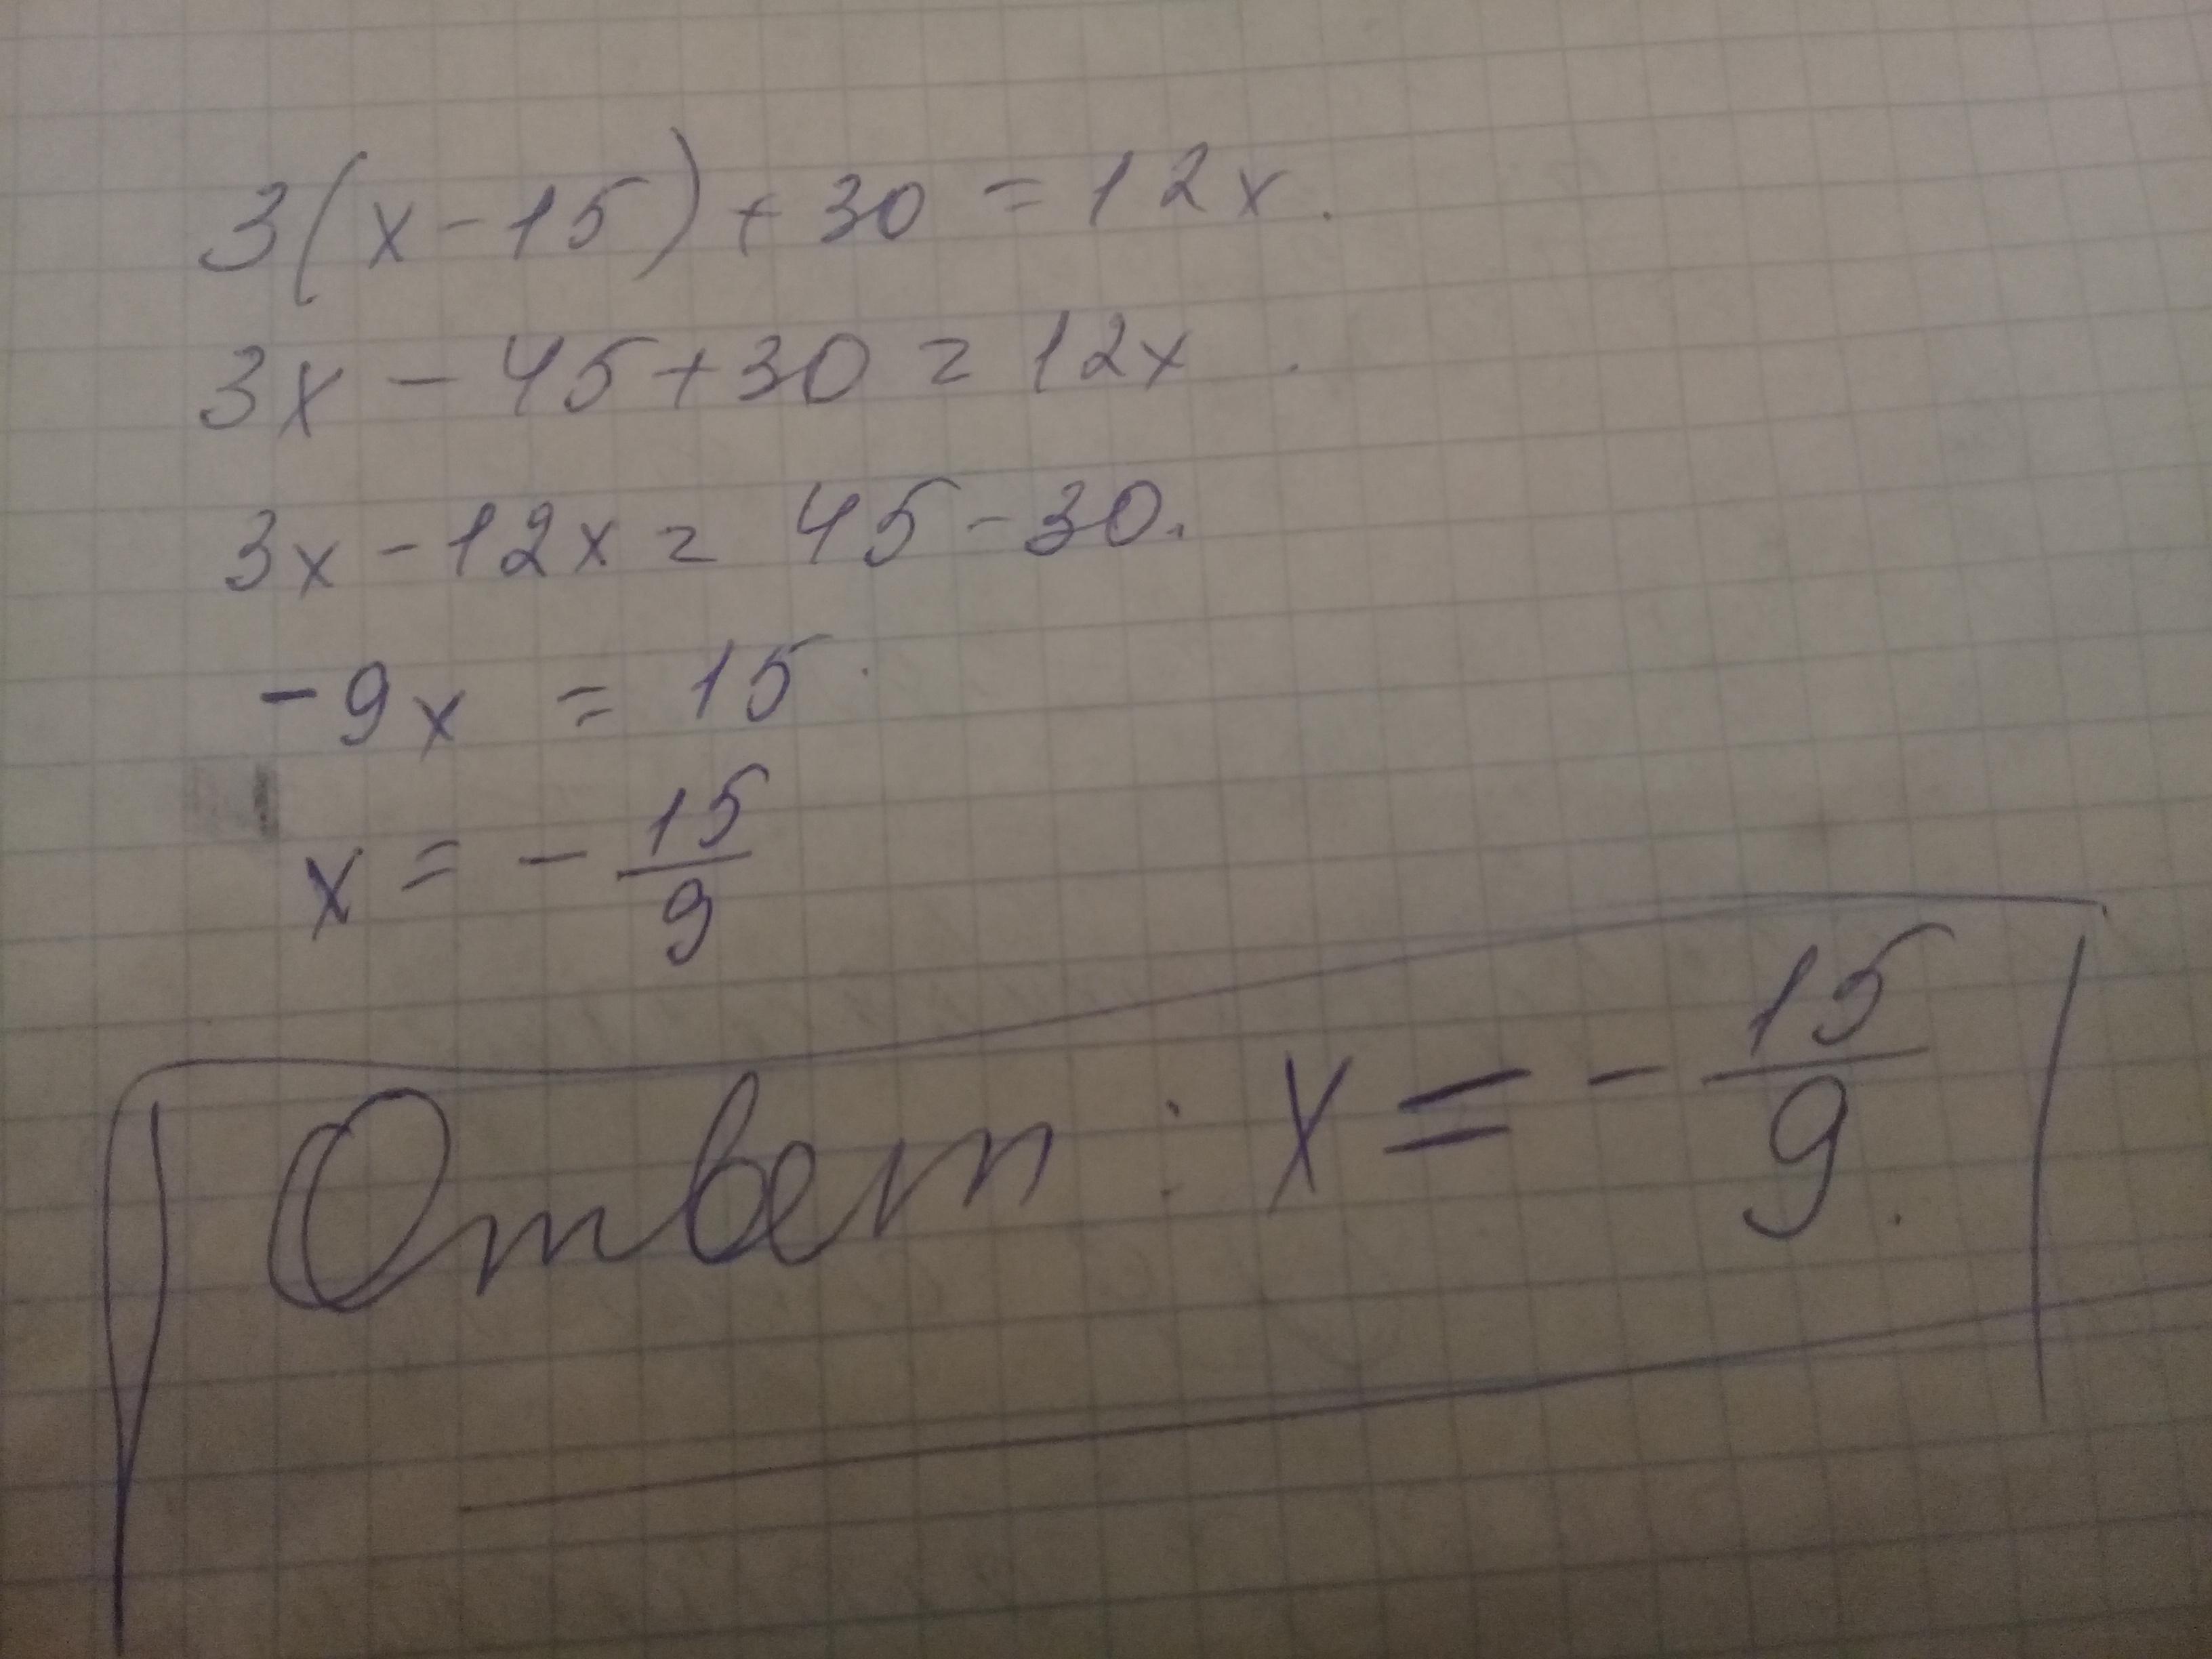 3(x-15)+30=12x.
3x-45+30=12x.
3x-12x=45-30.
-9x=15.
x=-15/9
Ответ: x=-15/9.